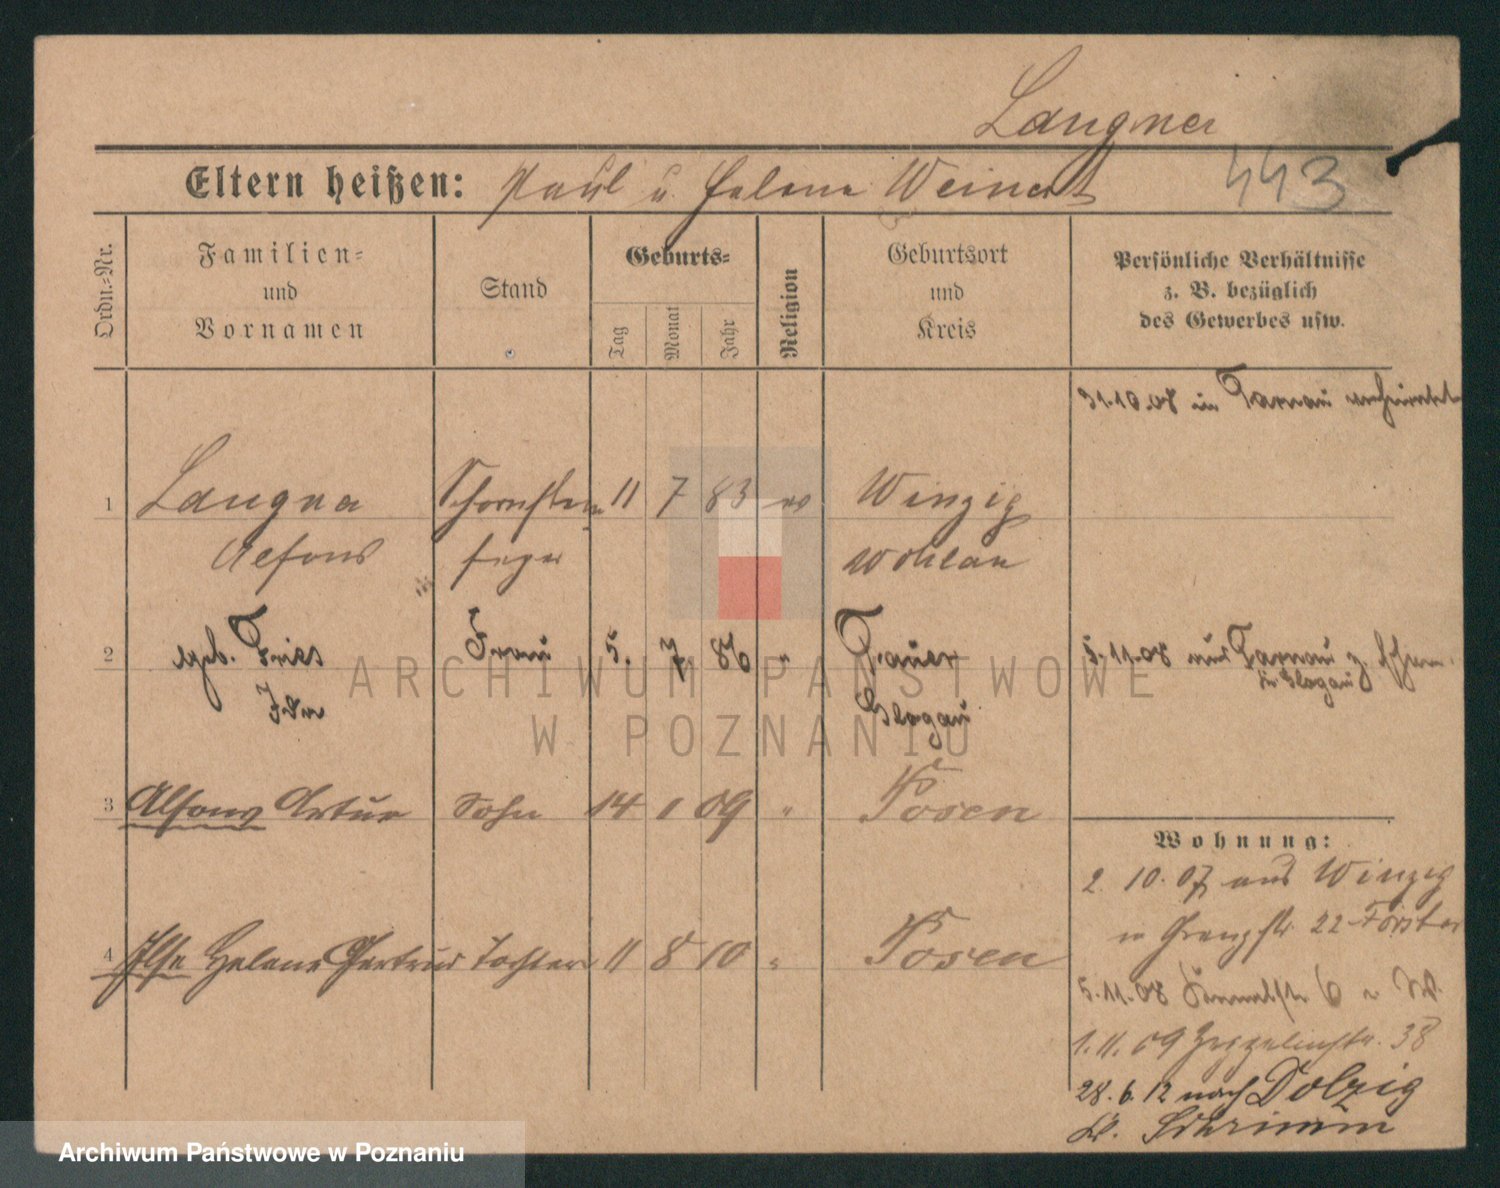 Langner
Eltern heißen: Paul u. Helene Weinert 443
Ordn.-Nr.
Familien-
und
Vornamen
Stand
Geburts-
Tag
Monat
Jahr
Religion
Geburtsort
und
Kreis
Persönliche Verhältnisse
z. B. bezüglich
des Gewerbes usw.
31.10.08 in Tarnau verheiratet
1 Langner Schornstein 11 7 83 ev Winzig
Alfons feger Wohlau
2 geb. Fries Frau 5. 7 86 " 5.11.08 aus Tarnau z.
in Glogau
Ida Glogau
3 Alfons Artur Sohn 14 1 09 " Posen
Wohnung:
2. 10. 07 aus Winzig
4 Ilse Helene Gertrud Tochter 11 8 10 " Posen
in Grenzstr. 22 Förster
5.11.08 6
1.11.09 Zeppelinstr. 38
28. 6. 12 nach Dolzig
Kr. Schrimm
ARCHIWUM PAŃSTWOWE
W POZNANIU
Archiwum Państwowe w Poznaniu